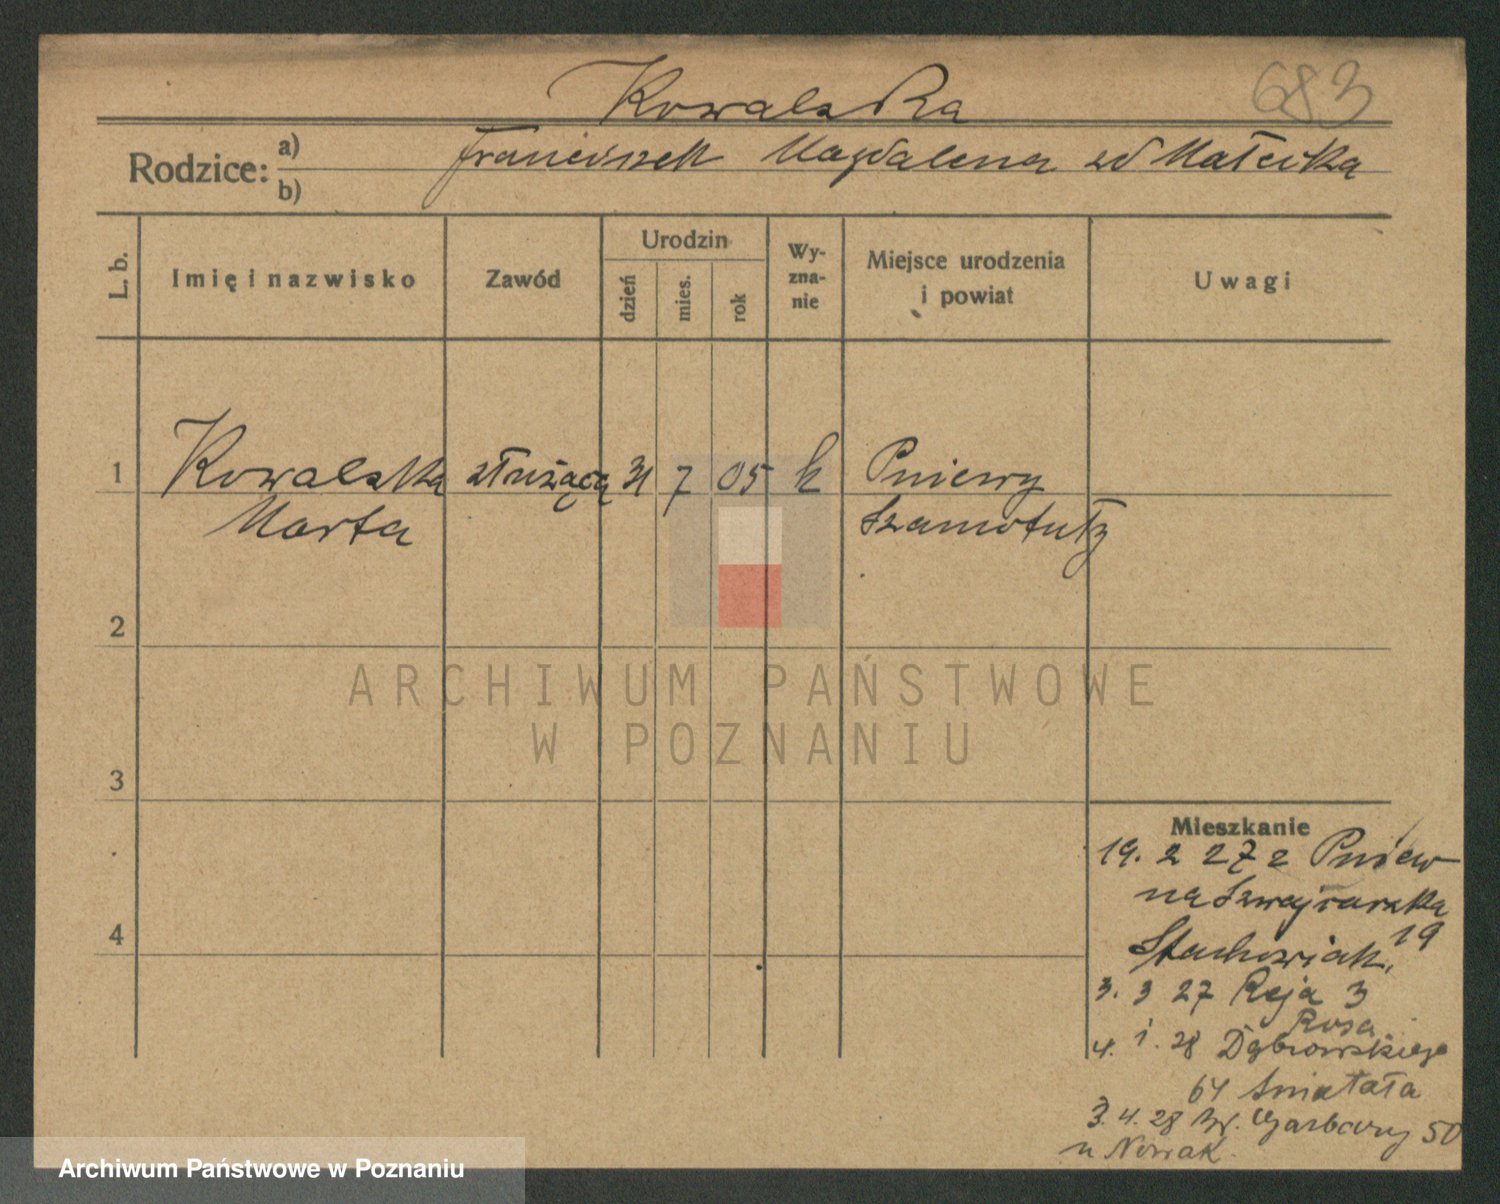 683
Kowalska
Rodzice: a) Franciszek Magdalena zd Małecka
b)
L. b. Imię i nazwisko Zawód Urodzin dzień mies. rok Wyznanie Miejsce urodzenia i powiat Uwagi
1 Kowalska służącą 31 7 05 k Pniewy
Marta Szamotuły
2
3
4
Mieszkanie
19. 2 27 z Pniew
na Szwajcarska
Stachowiak. 19
3. 3 27 Reja 3
Rosa
4. 1. 28 Dąbrowskiego
64 Świtała
3. 4. 28 Garbary 50
u Nowak.
ARCHIWUM PAŃSTWOWE
W POZNANIU
Archiwum Państwowe w Poznaniu